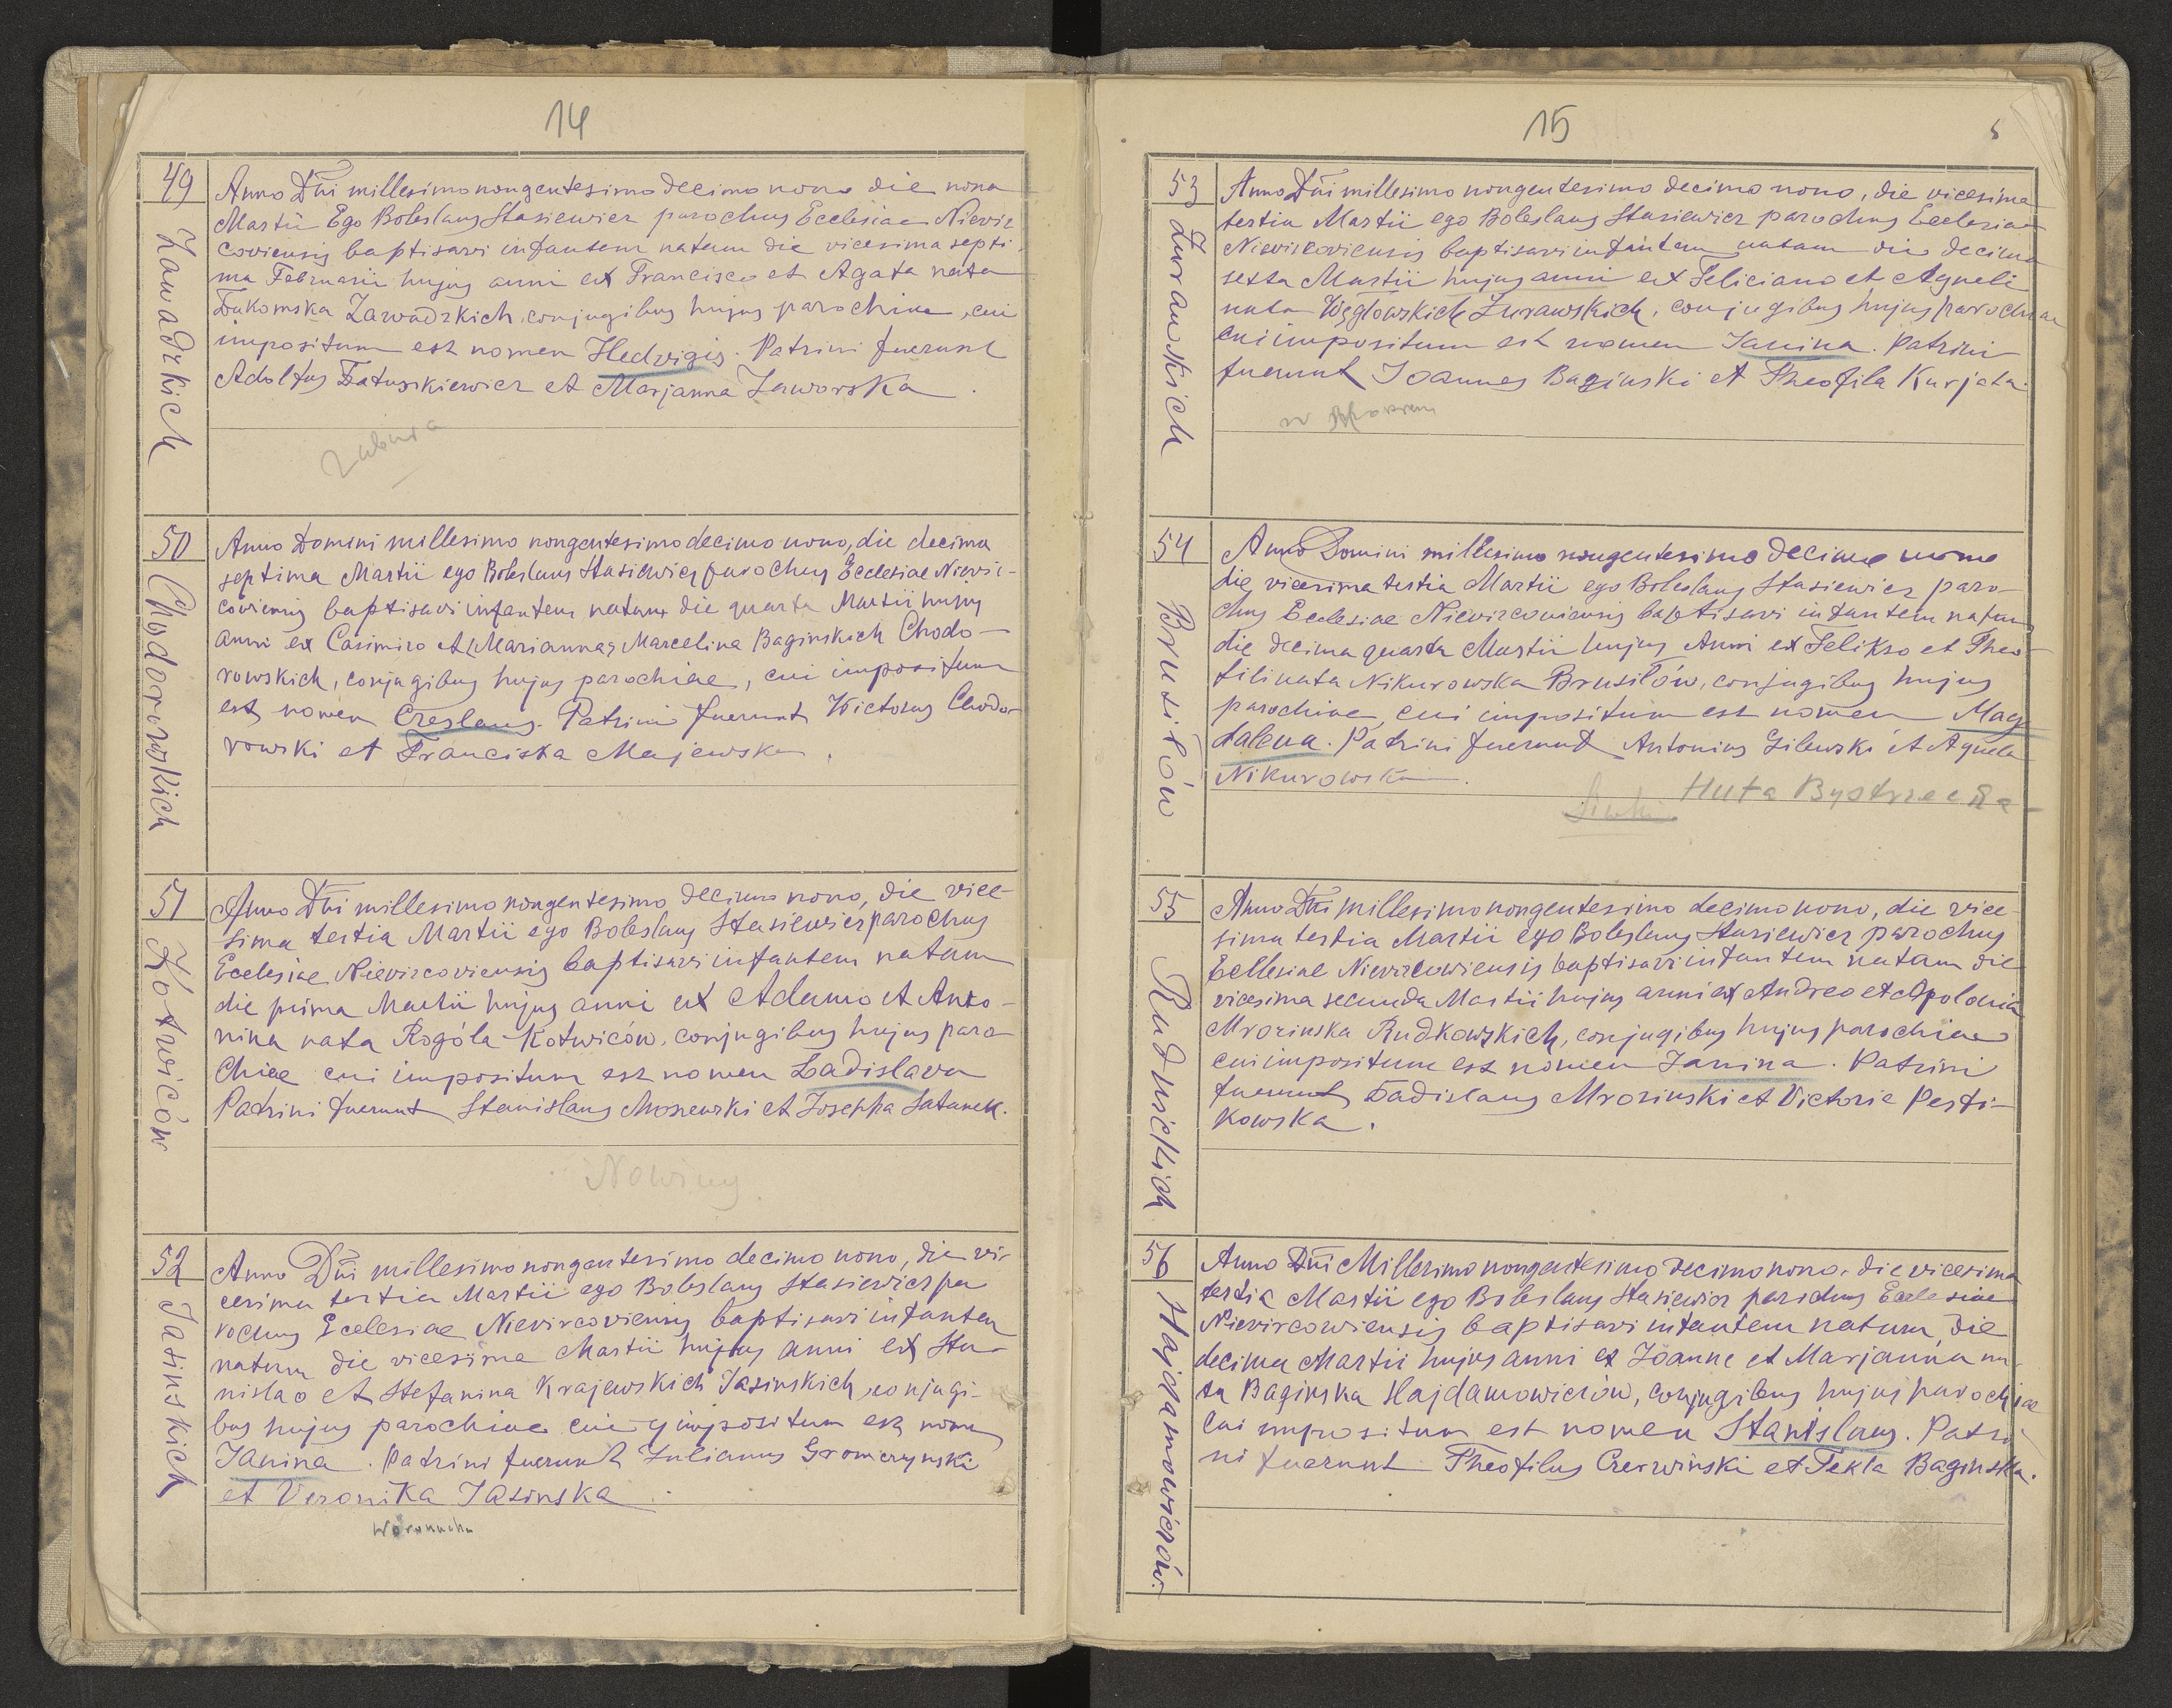 14
49
Zawadzkich
Anno Dni millesimo nongentesimo decimo nono die nona
Martii Ego Boleslaus Stasiewicz parochus Ecclesiae Nievir
coviensis baptisavi infantem natam die vicesima septi
ma Februarii hujus anni ex Francisco et Agata nata
Łukomska Zawadzkich, conjugibus hujus parochiae, cui
impositum est nomen Hedvigis. Patrini fuerunt
Adolfus Łatuszkiewicz et Marjanna Jaworska.
50
Chodorowskich
Anno Domini millesimo nongentesimo decimo nono, die decima
septima Martii ego Boleslaus Stasiewicz parochus Ecclesiae Nievir-
coviensis baptisavi infantem natum die quarta Martii hujus
anni ex Casimiro et Marianna, Marcelina Baginskich Chodo-
rowskich, conjugibus hujus parochiae, cui impositum
est nomen Czeslaus. Patrini fuerunt Wictorus Chodo-
rowski et Franciska Majewska.
51
Kotwiców
Anno Dni millesimo nongentesimo decimo nono, die vice-
sima tertia Martii ego Boleslaus Stasiewicz parochus
Ecclesiae Nievircoviensis baptisavi infantem natam
die prima Martii hujus anni ex Adamo et Anto-
nina nata Rogóla Kotwiców, conjugibus hujus paro-
chiae cui impositum est nomen Ładislava
Patrini fuerunt Stanislaus Moszewski et Josepha Satanek.
Nowiny
52
Jasinskich
Anno Dni millesimo nongentesimo decimo nono, die vi-
cesima tertia Martii ego Boleslaus Stasiewicz pa
rochus Ecclesiae Nievircoviensis baptisavi infantem
natam die vicesima Martii hujus anni ex Sta-
nislao et Stefanina Krajewskich Jasinskich, conjugi-
bus hujus parochiae cui impositum est nomen
Janina. Patrini fuerunt Julianus Gromczynski
et Veronika Jasinska.
15
53
Żurawskich
Anno Dni millesimo nongentesimo decimo nono, die vicesima
tertia Martii ego Boleslaus Stasiewicz parochus Ecclesiae
Nievircoviensis baptisavi infantem natam die decima
sexta Martii hujus anni ex Feliciano et Agneli
nata Węglowskich Żurawskich, conjugibus hujus parochiae
cui impositum est nomen Janina. Patrini
fuerunt Joannes Baginski et Theofila Kurjata.
54
Brusiłów
Anno Domini millesimo nongentesimo decimo nono
die vicesima tertia Martii ego Boleslaus Stasiewicz paro-
chus Ecclesiae Nievircoviensis baptisavi infantem natam
die decima quarta Martii hujus Anni ex Felikso et Theo-
fili nata Nikurowska Brusiłów, conjugibus hujus
parochiae, cui impositum est nomen Mag-
dalena. Patrini fuerunt Antonius Gilewski et Agnela
Nikurowska.
Huta Bystrzecka
55
Rudnickich
Anno Dni Millesimo nongentesimo decimo nono, die vice-
sima tertia Martii ego Boleslaus Stasiewicz parochus
Ecclesiae Nievircowiensis baptisavi infantem natam die
vicesima secunda Martii hujus anni ex Andreo et Apolonia
Mrozinska Rudkowskich, conjugibus hujus parochiae
cui impositum est nomen Janina. Patrini
fuerunt Ładislaus Mrozinski et Victoria Pesti-
kowska.
56
Hajdamowiczów.
Anno Dni Millesimo nongentesimo decimo nono, die vicesima
tertia Martii ego Boleslaus Stasiewicz parochus Ecclesiae
Nievircowiensis baptisavi infantem natum, die
decima Martii hujus anni ex Joanne et Marjanna na-
ta Baginska Hajdamowiczów, conjugibus hujus parochiae
cui impositum est nomen Stanislaus. Patri
ni fuerunt Theofilus Czerwinski et Tekla Baginska.